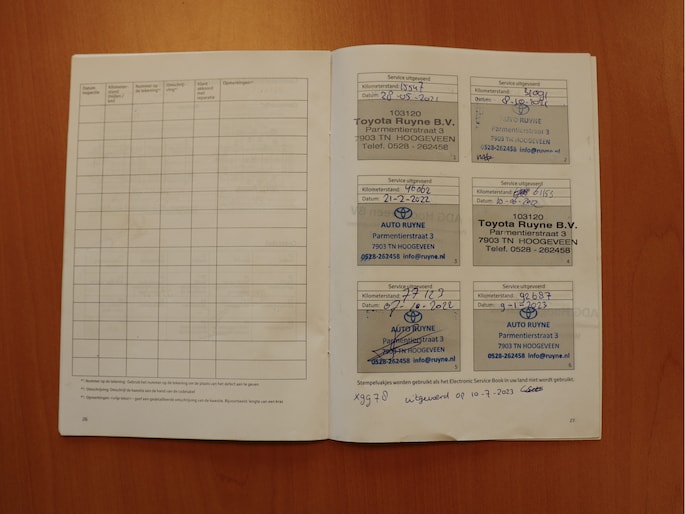 Datum
inspectie
Kilometer-
stand
Nummer op
de tekening*¹
Omschrij-
ving*²
Opmerkingen*³
36
Service uitgevoerd
Kilometerstand: 15547
Datum: 28-05-2021
103120
Toyota Ruyne B.V.
Parmentierstraat 3
7903 TN HOOGEVEEN
Telef. 0528 - 262458
1
Service uitgevoerd
Kilometerstand: 31091
Datum: 8-10-2021
AUTO RUYNE
Parmentierstraat 3
7903 TN HOOGEVEEN
0528-262458 info@ruyne.nl
2
Service uitgevoerd
Kilometerstand: 46062
Datum: 21-2-2022
AUTO RUYNE
Parmentierstraat 3
7903 TN HOOGEVEEN
0528-262458 info@ruyne.nl
3
Service uitgevoerd
Kilometerstand:
Datum:
103120
Toyota Ruyne B.V.
Parmentierstraat 3
7903 TN HOOGEVEEN
Telef. 0528 - 262458
4
Service uitgevoerd
Kilometerstand: 77123
Datum: 07-10-2022
AUTO RUYNE
Parmentierstraat 3
7903 TN HOOGEVEEN
0528-262458 info@ruyne.nl
5
Service uitgevoerd
Kilometerstand: 92687
Datum: 9-1-2023
AUTO RUYNE
Parmentierstraat 3
7903 TN HOOGEVEEN
0528-262458 info@ruyne.nl
6
Stempelvakjes worden gebruikt als het Electronic Service Book in uw land niet wordt gebruikt.
uitgevoerd op 10-7-2023
37